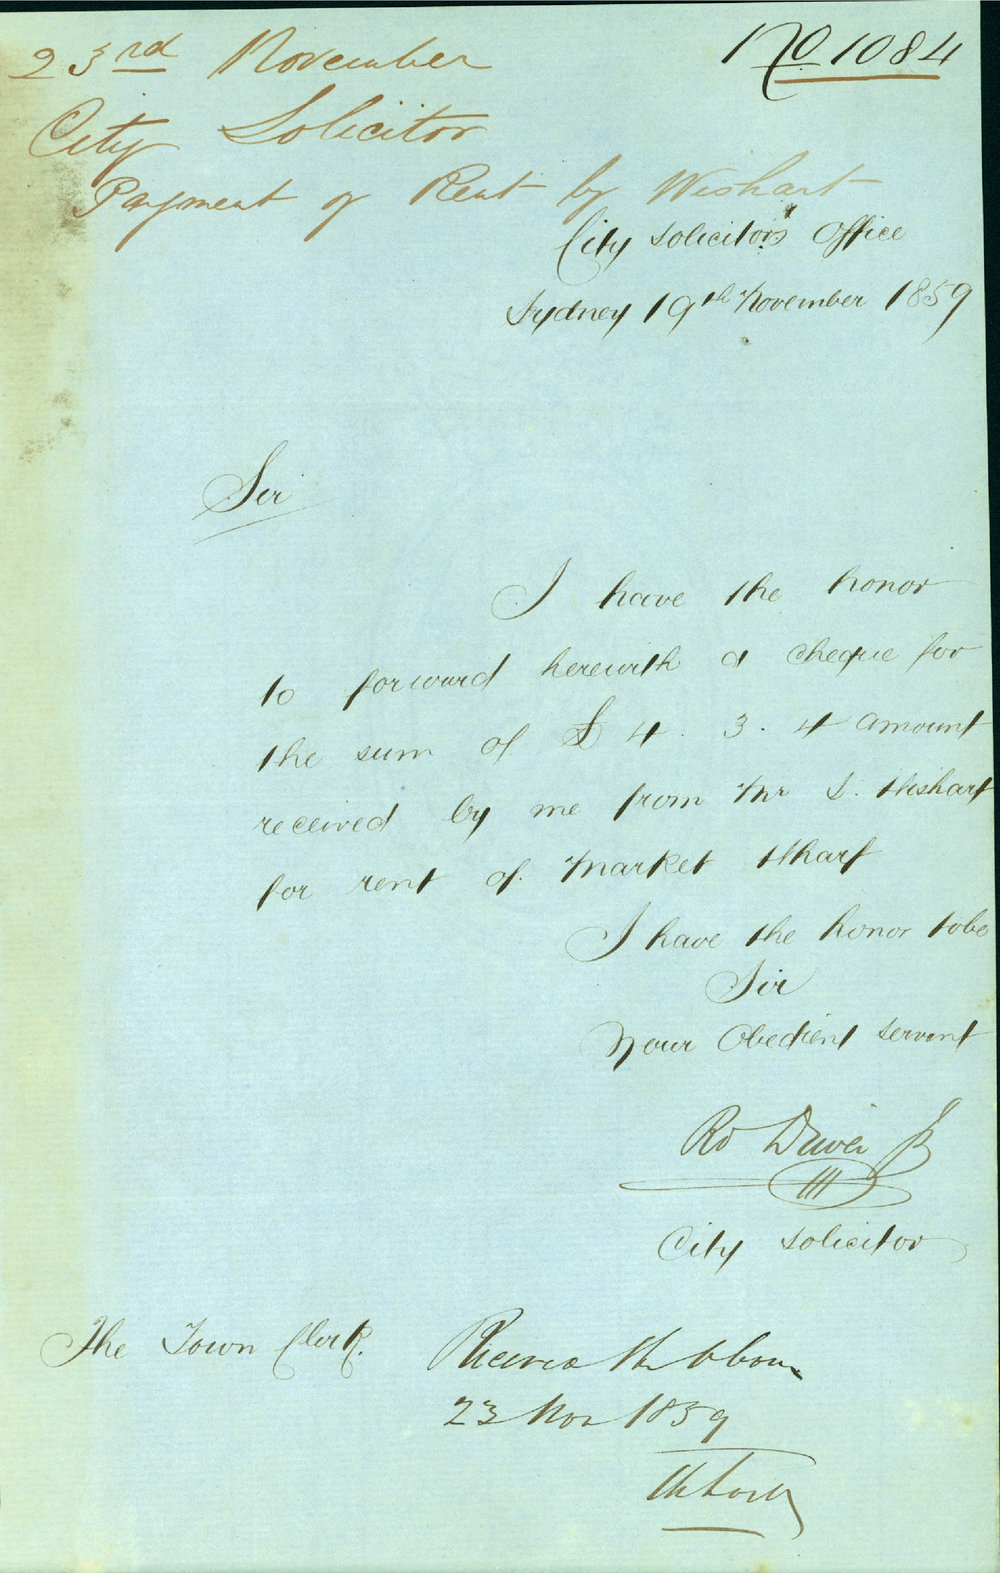 23rd November
No 1084
City Solicitor
Payment of Rent by Wishart
City Solicitors Office
Sydney 19th November 1859
Sir
I have the honor
to forward herewith a cheque for
the sum of £4. 3. 4 amount
received by me from Mr S. Wishart
for rent of Market Wharf
I have the honor to be
Sir
Your Obedient Servant
City Solicitor
The Town Clerk.
Received the above
23 Nov 1859